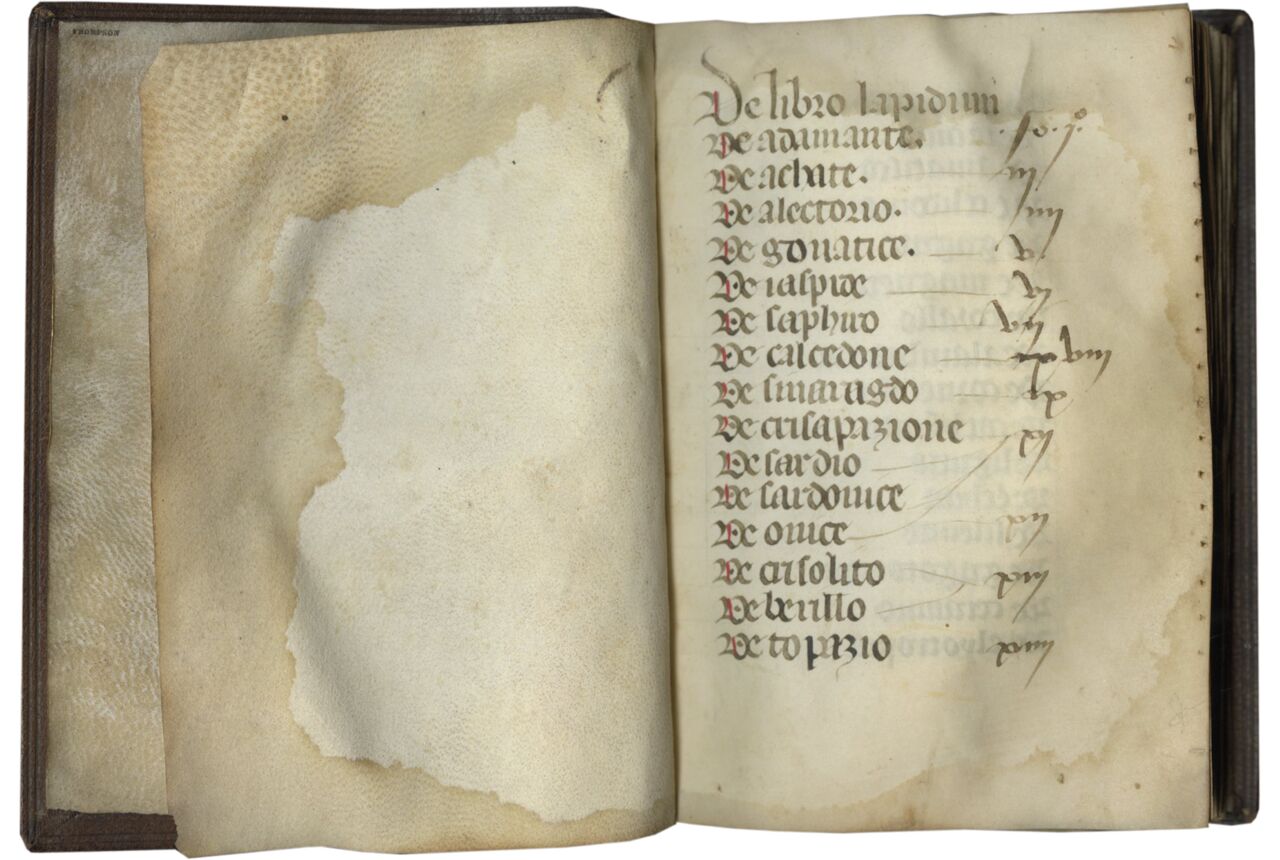 THOMPSON
De libro lapidum
De adamante. fo. j.
De achate. iij
De alectorio. iiij
De gonatice. v
De iaspide vj
De saphiro vij
De calcedone viij
De smaragdo ix
De crisaprizione xj
De sardio
De sardonice
De onice xij
De crisolito xiij
De berillo
De topazio xiiij